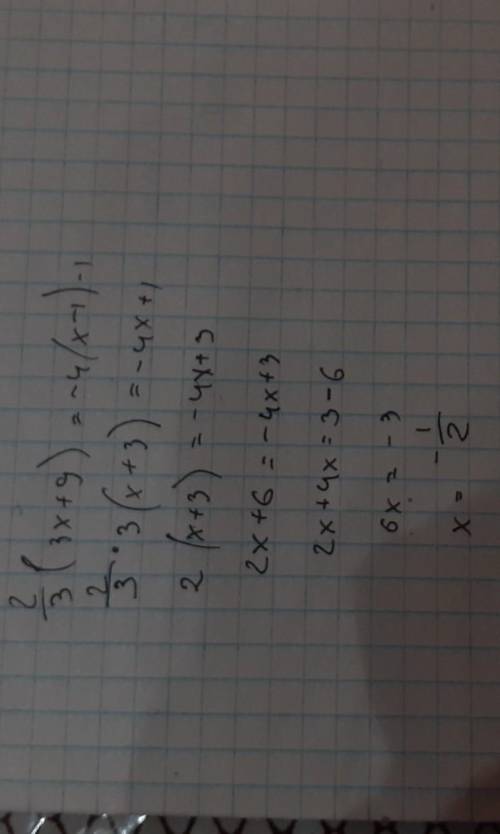 2/3 (3x+9) = -4(x-1)-1
2/3 · 3(x+3) = -4x+1
2 (x+3) = -4x+3
2x+6 = -4x+3
2x+4x = 3-6
6x = -3
x = - 1/2